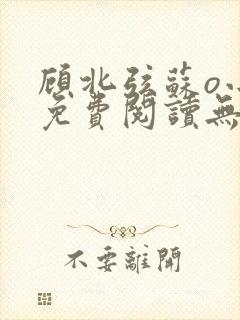 顧北弦蘇o.
免費閱讀無
不要離開